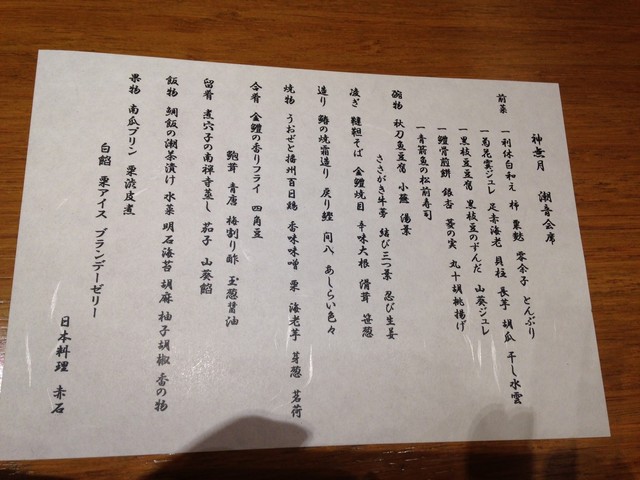 神無月 潮音会席
前菜 一 利休白和え 柿 栗麩 零余子 とんぶり
一 菊花寅ジュレ 足赤海老 貝柱 長芋 胡瓜 干し水雲
一 黒枝豆豆腐 黒枝豆のずんだ 山葵ジュレ
一 鱧骨煎餅 銀杏 菱の実 丸十胡桃揚げ
一 青箭魚の松前寿司
椀物 秋刀魚豆腐 小蕪 湯葉
ささがき牛蒡 結び三つ葉 忍び生姜
凌ぎ 韃靼そば 金鱧焼目 辛味大根 滑茸 笹葱
造り 鰆の焼霜造り 戻り鰹 間八 あしらい色々
焼物 うおぜと播州百日鶏 香味味噌 栗 海老芋 芽葱 茗荷
合肴 金鱧の香りフライ 四角豆
鮑茸 青唐 梅割り酢 玉葱醤油
留肴 煮穴子の南禅寺蒸し 茄子 山葵餡
飯物 鯛飯の潮茶漬け 水菜 明石海苔 胡麻 柚子胡椒 香の物
果物 南瓜プリン 栗渋皮煮
白餡 栗アイス ブランデーゼリー
日本料理 赤石